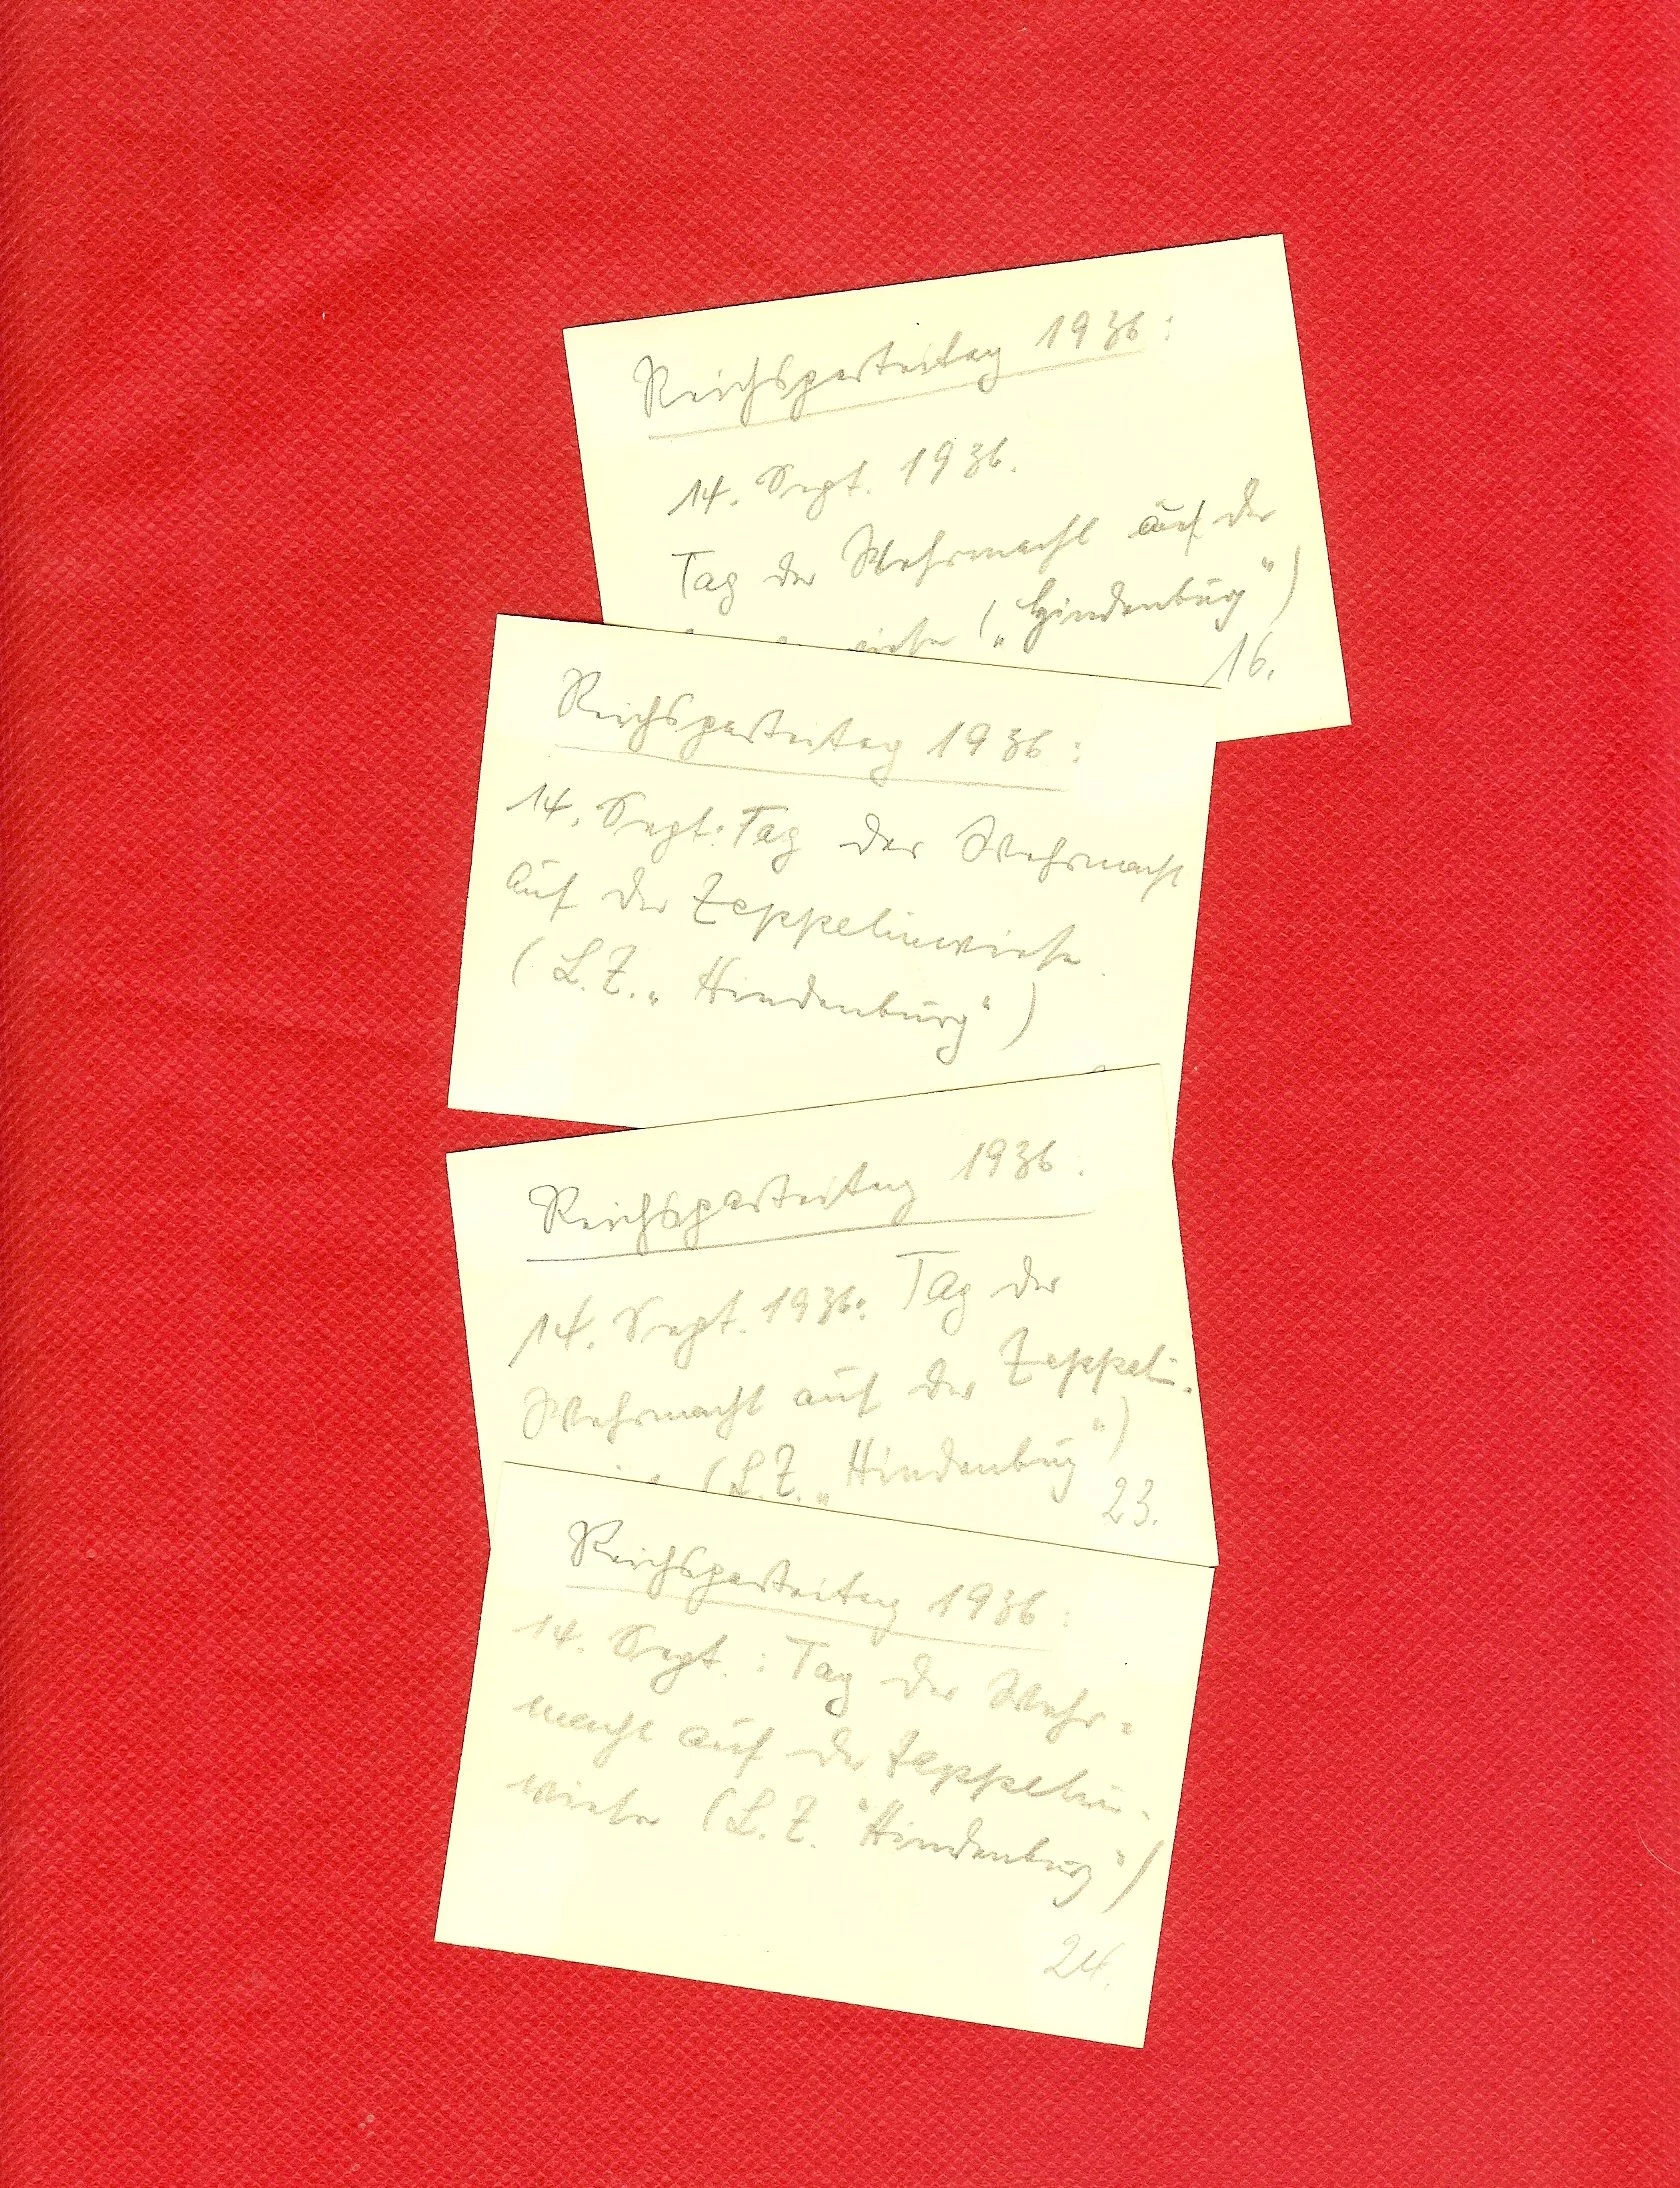 Reichsparteitag 1936:
14. Sept. 1936.
Tag der Wehrmacht auf der
wiese („Hindenburg“)
16.
Reichsparteitag 1936:
14. Sept: Tag der Wehrmacht
auf der Zeppelinwiese
(L.Z. „Hindenburg“)
Reichsparteitag 1936:
14. Sept. 1936: Tag der
Wehrmacht auf der Zeppelin-
(L.Z. „Hindenburg“)
23.
Reichsparteitag 1936:
14. Sept.: Tag der Wehr-
macht auf der Zeppelin-
wiese (L.Z. "Hindenburg")
24.